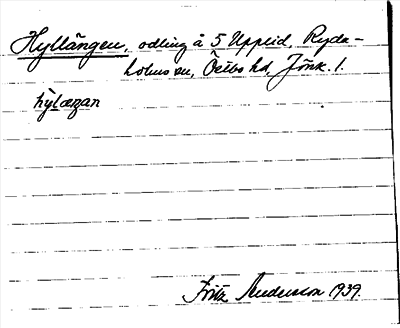 Hyllängen, odling å 5 Upplid, Ryda-
holms sn, Östbo hd, Jönk. l.
hỳlæŋan
Fritz Anderson 1939.